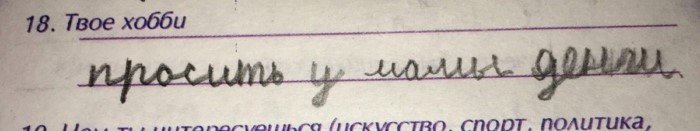 18. Твое хобби
просить у мамы деньги
19. Чем ты интересуешься (искусство, спорт, политика,